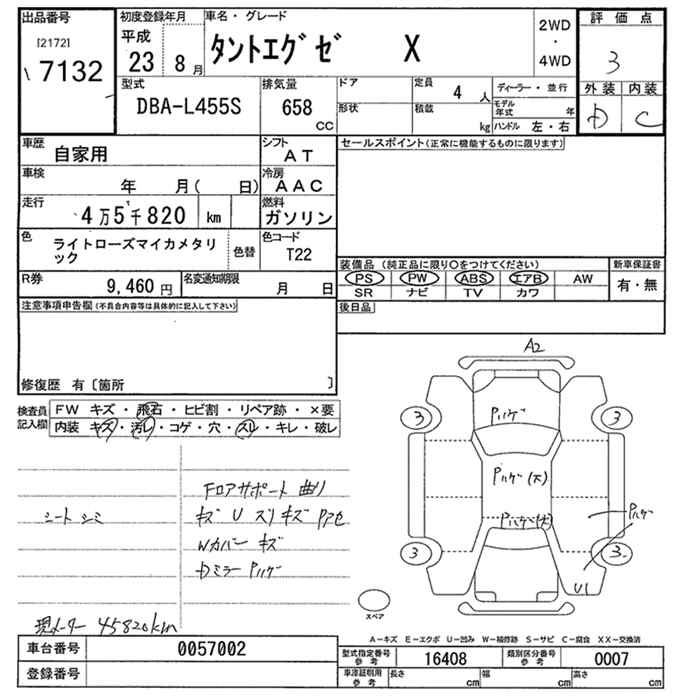 出品番号
[2172]
7132
初度登録年月
平成
23 8 月
車名・グレード
タントエグゼ X
2WD
・
4WD
評価点
3
外装 内装
D C
型式
DBA-L455S
排気量
658
CC
ドア
形状
定員
4 人
積載
kg
ディーラー・並行
モデル年式 年
ハンドル 左・右
車歴
自家用
シフト
AT
車検
年 月( 日)
冷房
AAC
走行
4万5千820 km
燃料
ガソリン
色
ライトローズマイカメタリック
色替
色コード
T22
R券
9,460円
名変通知期限
月 日
セールスポイント(正常に機能するものに限ります)
装備品(純正品に限り○をつけてください)
PS PW ABS エアB AW
SR ナビ TV カワ
新車保証書
有・無
後日品
注意事項申告欄(不具合内容等は具体的に記入して下さい)
修復歴 有〔箇所 〕
検査員記入欄
FW キズ・飛石・ヒビ割・リペア跡・×要
内装 キズ・汚レ・コゲ・穴・スレ・キレ・破レ
フロアサポート 曲り
シート シミ
キズ U スリキズ Pアセ
Wカバー キズ
Dミラー Pハゲ
現メーター 45820km
A2
Pハゲ
3 3
Pハゲ(大)
Pハゲ(大)
Pハゲ
3 3
U1
スペア
A-キズ E-エクボ U-凹み W-補修跡 S-サビ C-腐食 XX-交換済
車台番号
0057002
登録番号
型式指定番号
参考
16408
類別区分番号
参考
0007
車庫証明用
参考
長さ cm 幅 cm 高さ cm